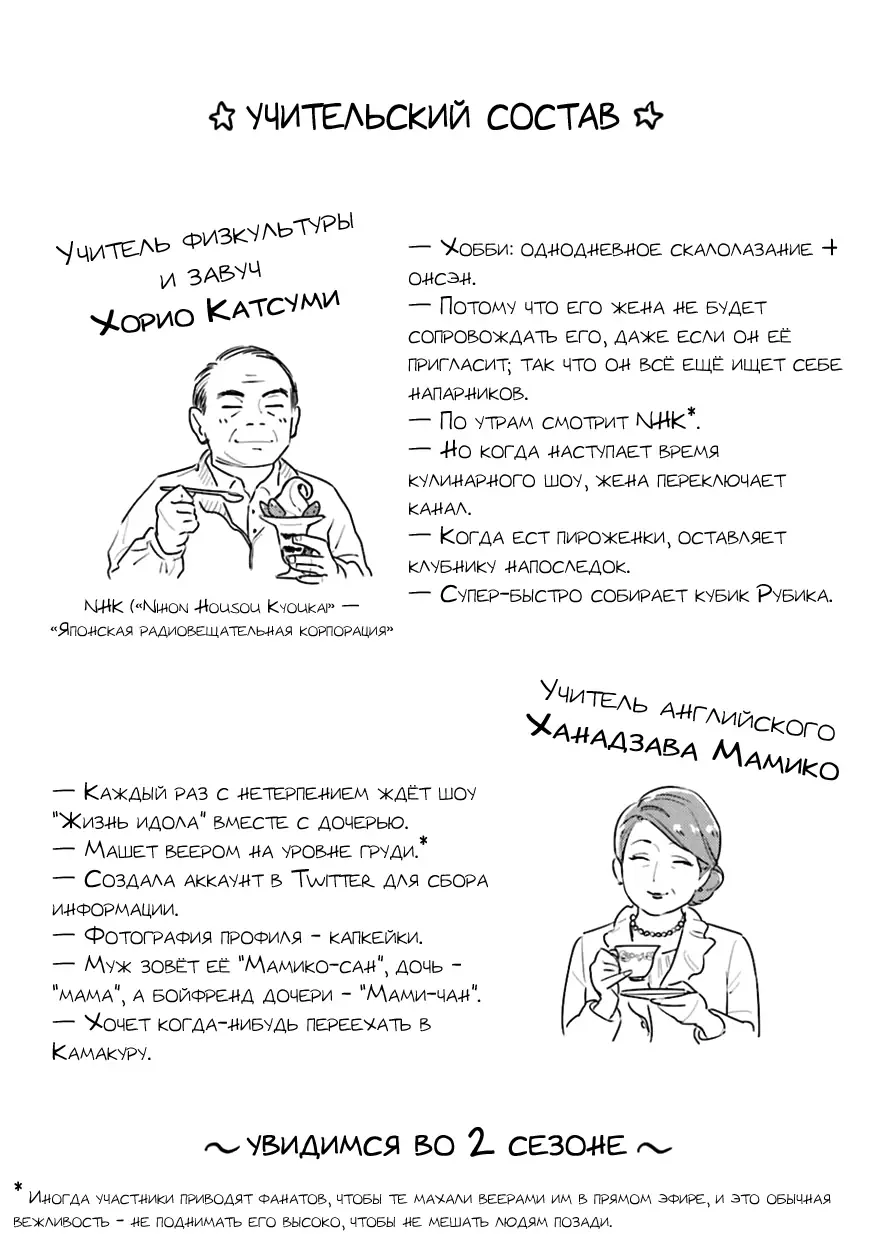 ☆ Учительский состав ☆
Учитель физкультуры
и завуч
Хорио Катсуми
— Хобби: однодневное скалолазание +
онсэн.
— Потому что его жена не будет
сопровождать его, даже если он её
пригласит; так что он всё ещё ищет себе
напарников.
— По утрам смотрит NHK*.
— Но когда наступает время
кулинарного шоу, жена переключает
канал.
— Когда ест пироженки, оставляет
клубнику напоследок.
— Супер-быстро собирает кубик Рубика.
NHK («Nihon Housou Kyoukai» —
«Японская радиовещательная корпорация»
Учитель английского
Ханадзава Мамико
— Каждый раз с нетерпением ждёт шоу
"Жизнь идола" вместе с дочерью.
— Машет веером на уровне груди.*
— Создала аккаунт в Twitter для сбора
информации.
— Фотография профиля - капкейки.
— Муж зовёт её "Мамико-сан", дочь -
"мама", а бойфренд дочери - "Мами-чан".
— Хочет когда-нибудь переехать в
Камакуру.
~ увидимся во 2 сезоне ~
* Иногда участники приводят фанатов, чтобы те махали веерами им в прямом эфире, и это обычная
вежливость - не поднимать его высоко, чтобы не мешать людям позади.